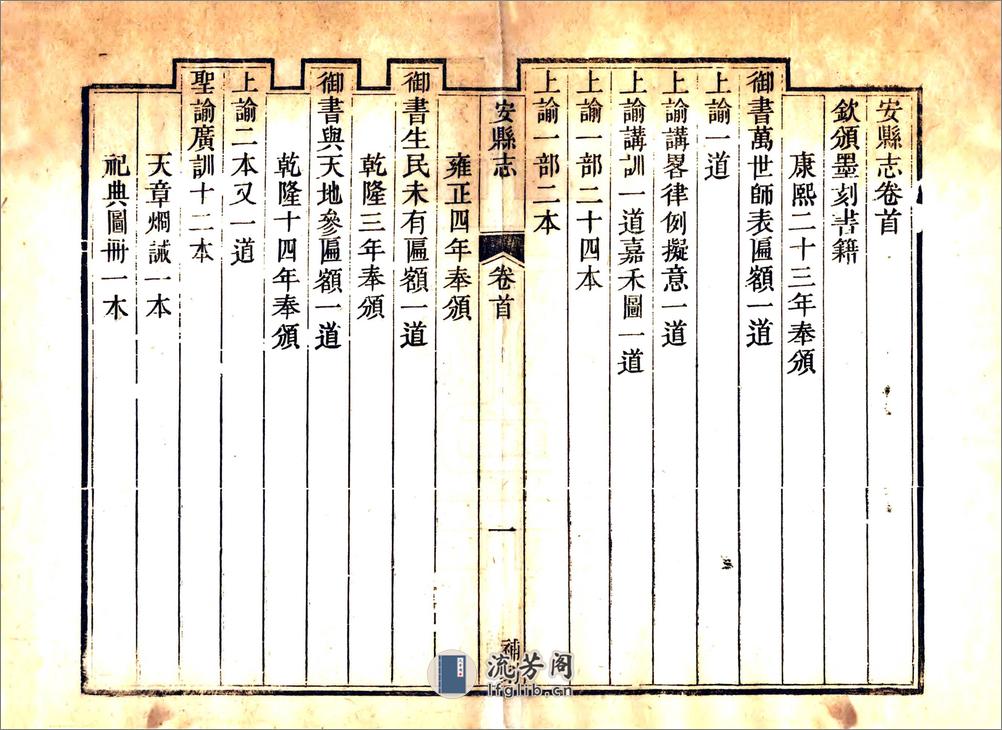 安縣志卷首
欽頒墨刻書籍
康熙二十三年奉頒
御書萬世師表匾額一道
上諭一道
上諭講畧律例擬意一道
上諭講訓一道嘉禾圖一道
上諭一部二十四本
上諭一部二本
安縣志
卷首
一
補
雍正四年奉頒
御書生民未有匾額一道
乾隆三年奉頒
御書與天地參匾額一道
乾隆十四年奉頒
上諭二本又一道
聖諭廣訓十二本
天章烱誡一本
祀典圖冊一本
流芳阁
lfglib.cn